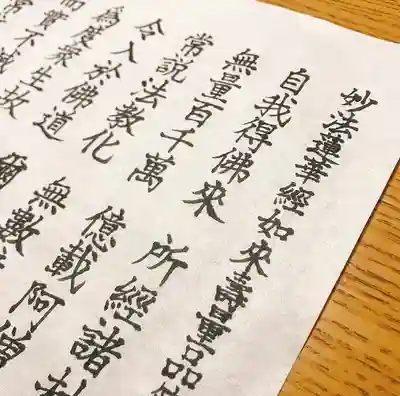 妙法蓮華經如來壽量品
自我得佛來 所經諸
無量百千萬 億載阿僧
常説法教化 無數
令入於佛道 爾
為度衆生故
而實不滅